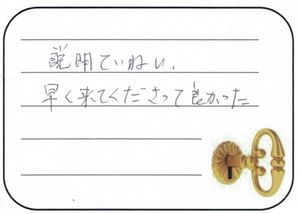 説明ていねい、
早く来てくださって良かった